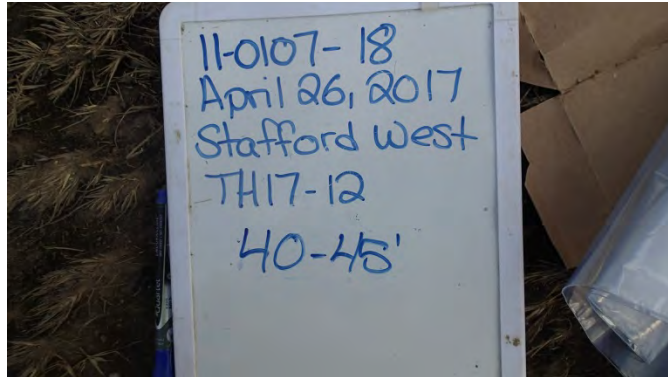 11-0107-18
April 26, 2017
Stafford West
TH17-12
40-45'